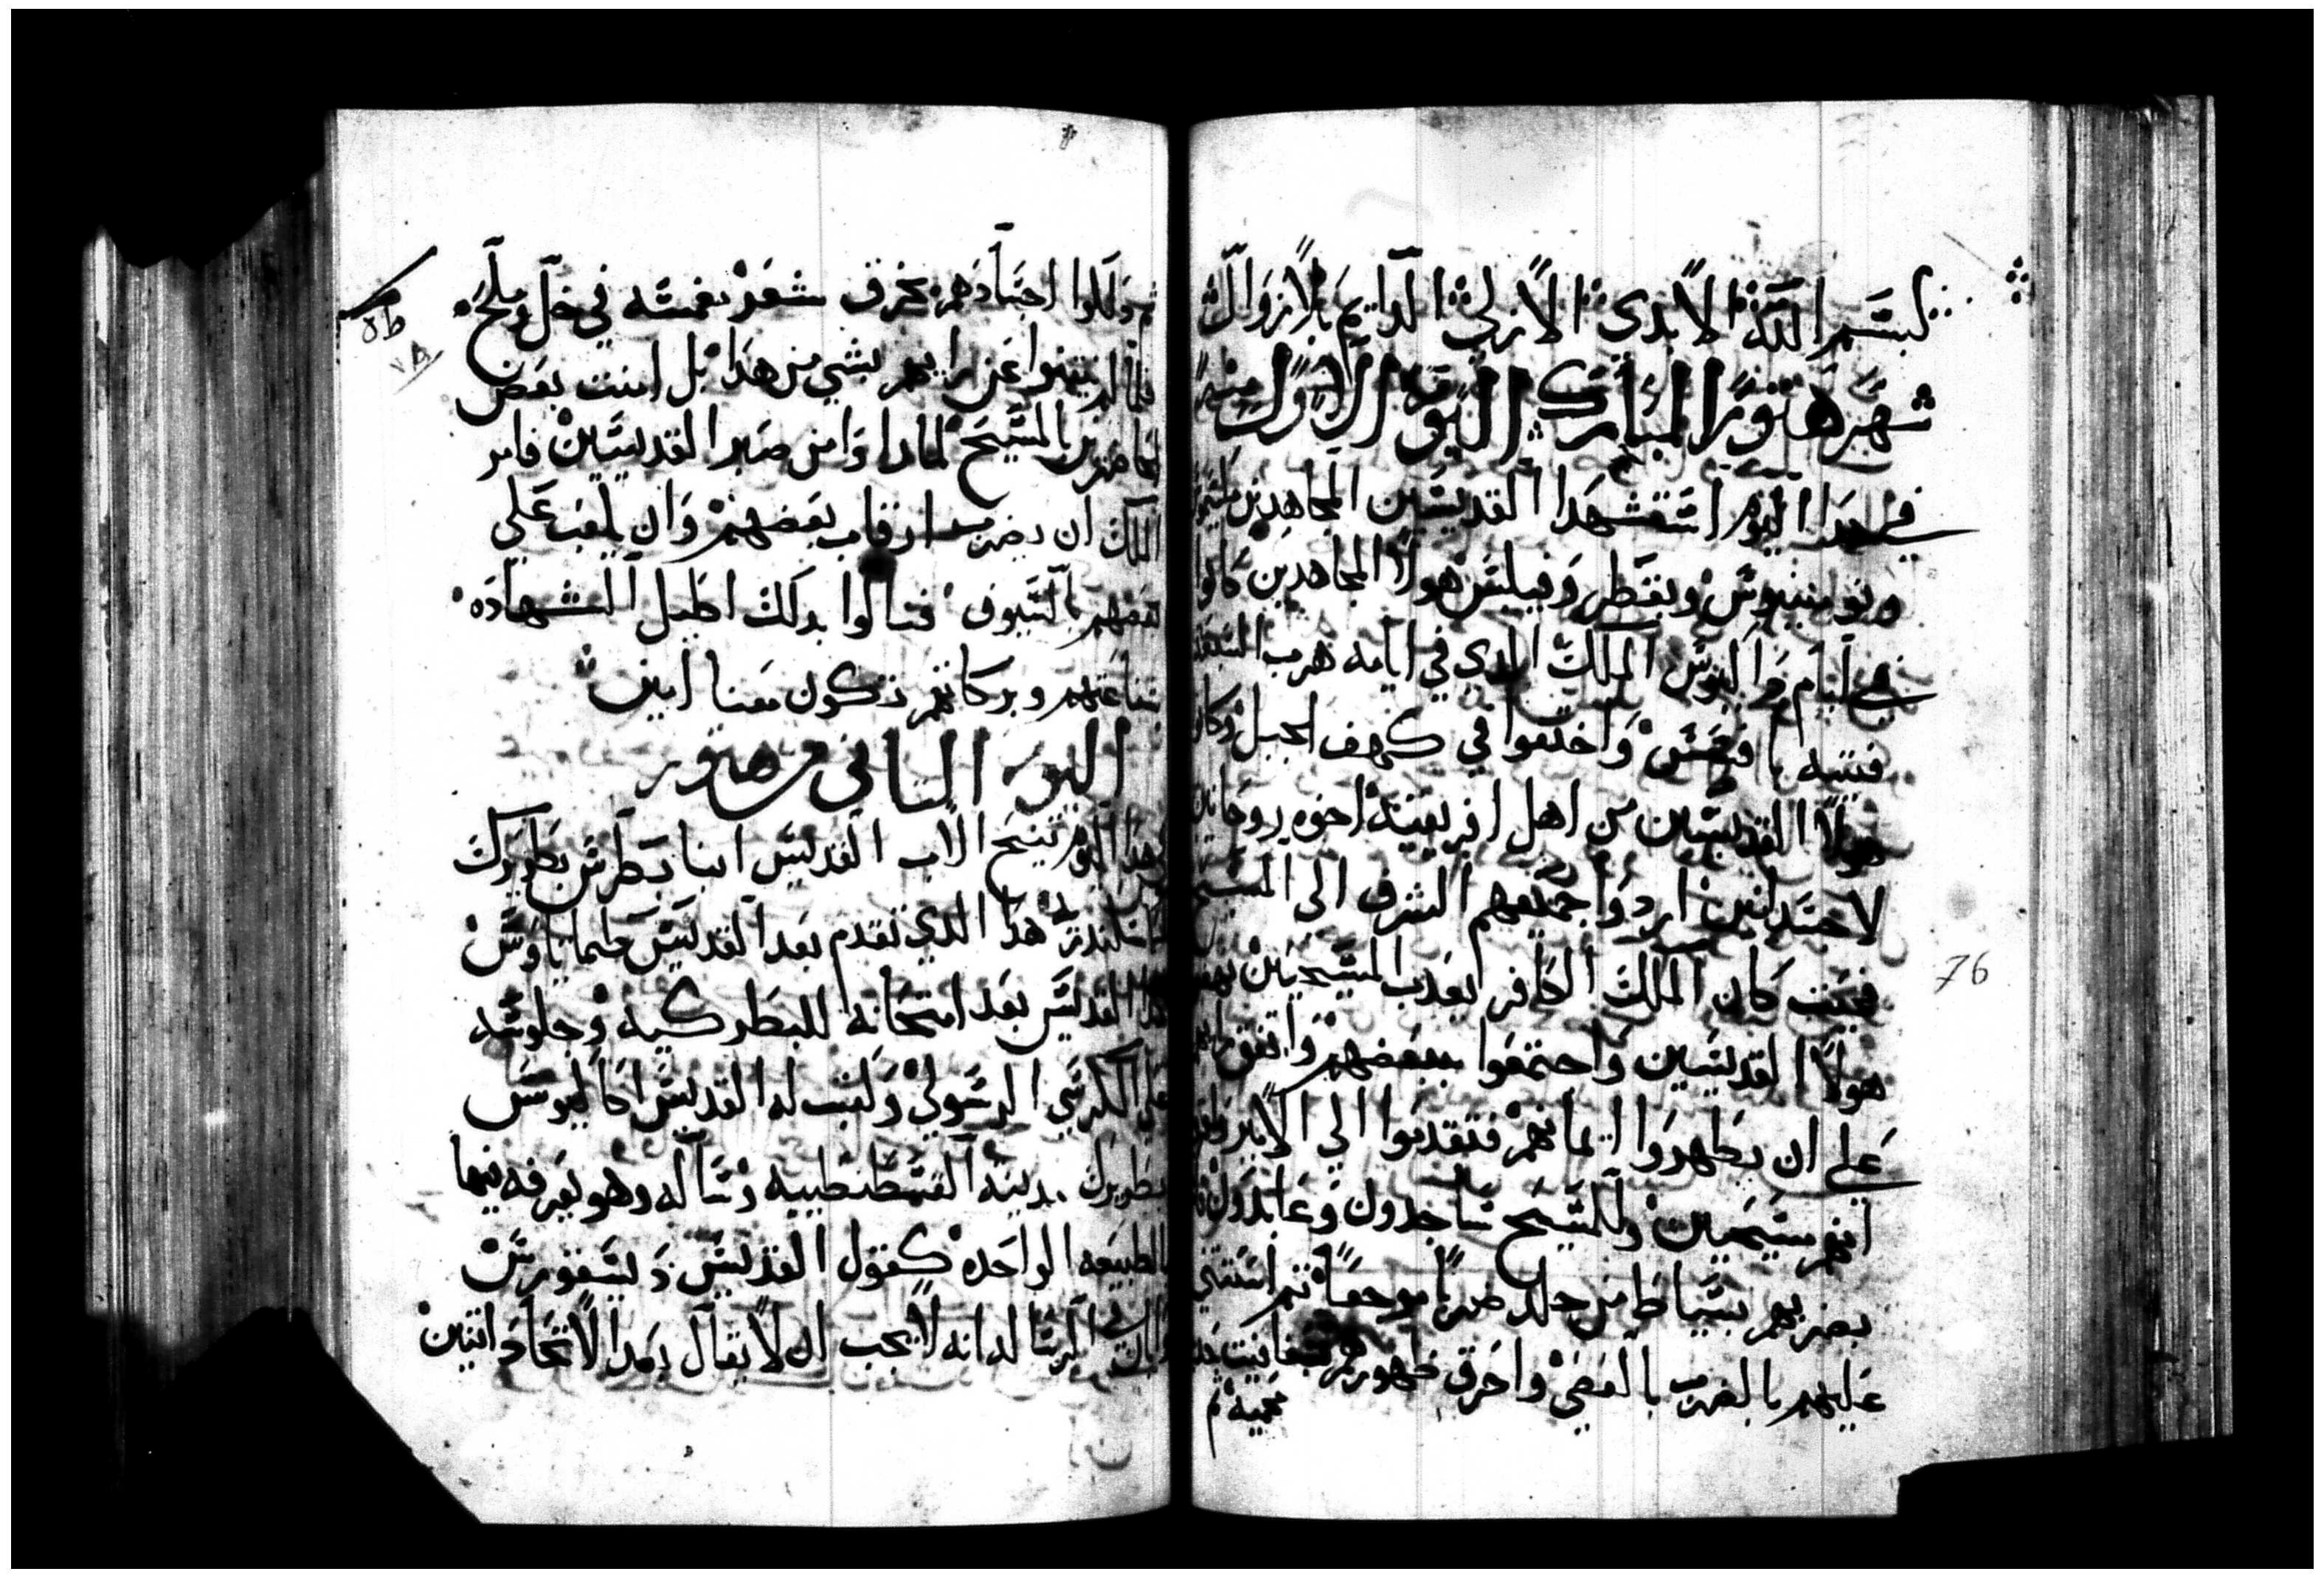 بسم الله الابدى الازلى الدايم بلا زوال
شهر هتور المبارك اليوم الاول منه
في هدا اليوم استشهدا القديسين المجاهدين مكسيموس
ونومنيوس وبقطر وفيلبس هولا المجاهدين كانوا
في ايام داكيوس الملك الدى في ايامه هرب السبعة
فتيه بافسس واختفوا في كهف الجبل وكان
هولا القديسين من اهل افريقية اخوه روحانين
لا جسدانين ارادوا جميعهم الشرف الى المسيح
فحيت كان الملك الكافر يعدب المسيحين نهض
هولا القديسين واجتمعوا ببعضهم واتفق رايهم
على ان يظهروا ايمانهم فتقدموا الى
انهم مسيحيين وللمسيح ساجدون وعابدون
بضربهم بسياط من جلد ضربا موجعا تم استتني
عليهم بالضرب بالعصي واحرق ظهورهم
محميه تم
76
تم دلكوا اجسادهم بخرق شعر مغمسه في خل وملح
فلما لم ينتنوا عن رايهم بشي من هدا بل امنت بعض
الحاضرين بالمسيح لما راوا من صبر القديسين فامر
الملك ان يضربوا رقاب بعضهم وان يلقب على
بعضهم بالسيوف فنالوا بدلك اكليل الشهاده
شفاعتهم وبركاتهم تكون معنا امين
اليوم التاني من هتور
في هدا اليوم تنيح الاب القديس انبا بطرس بطريرك
هدا الدي تقدم بعد القديس طيماتاوس
هدا القديس بعد امتحانه للبطركيه وجلوسه
على الكرسي الرسولي وكتب له القديس اكاكيوس
بطريرك مدينه القسطنطينيه رساله وهو يعرفه فيها
بالطبيعه الواحده كقول القديس ديسقورس
الرساله انه لا يجب ان لا يقال بعد الاتحاد اتنين
٧٨